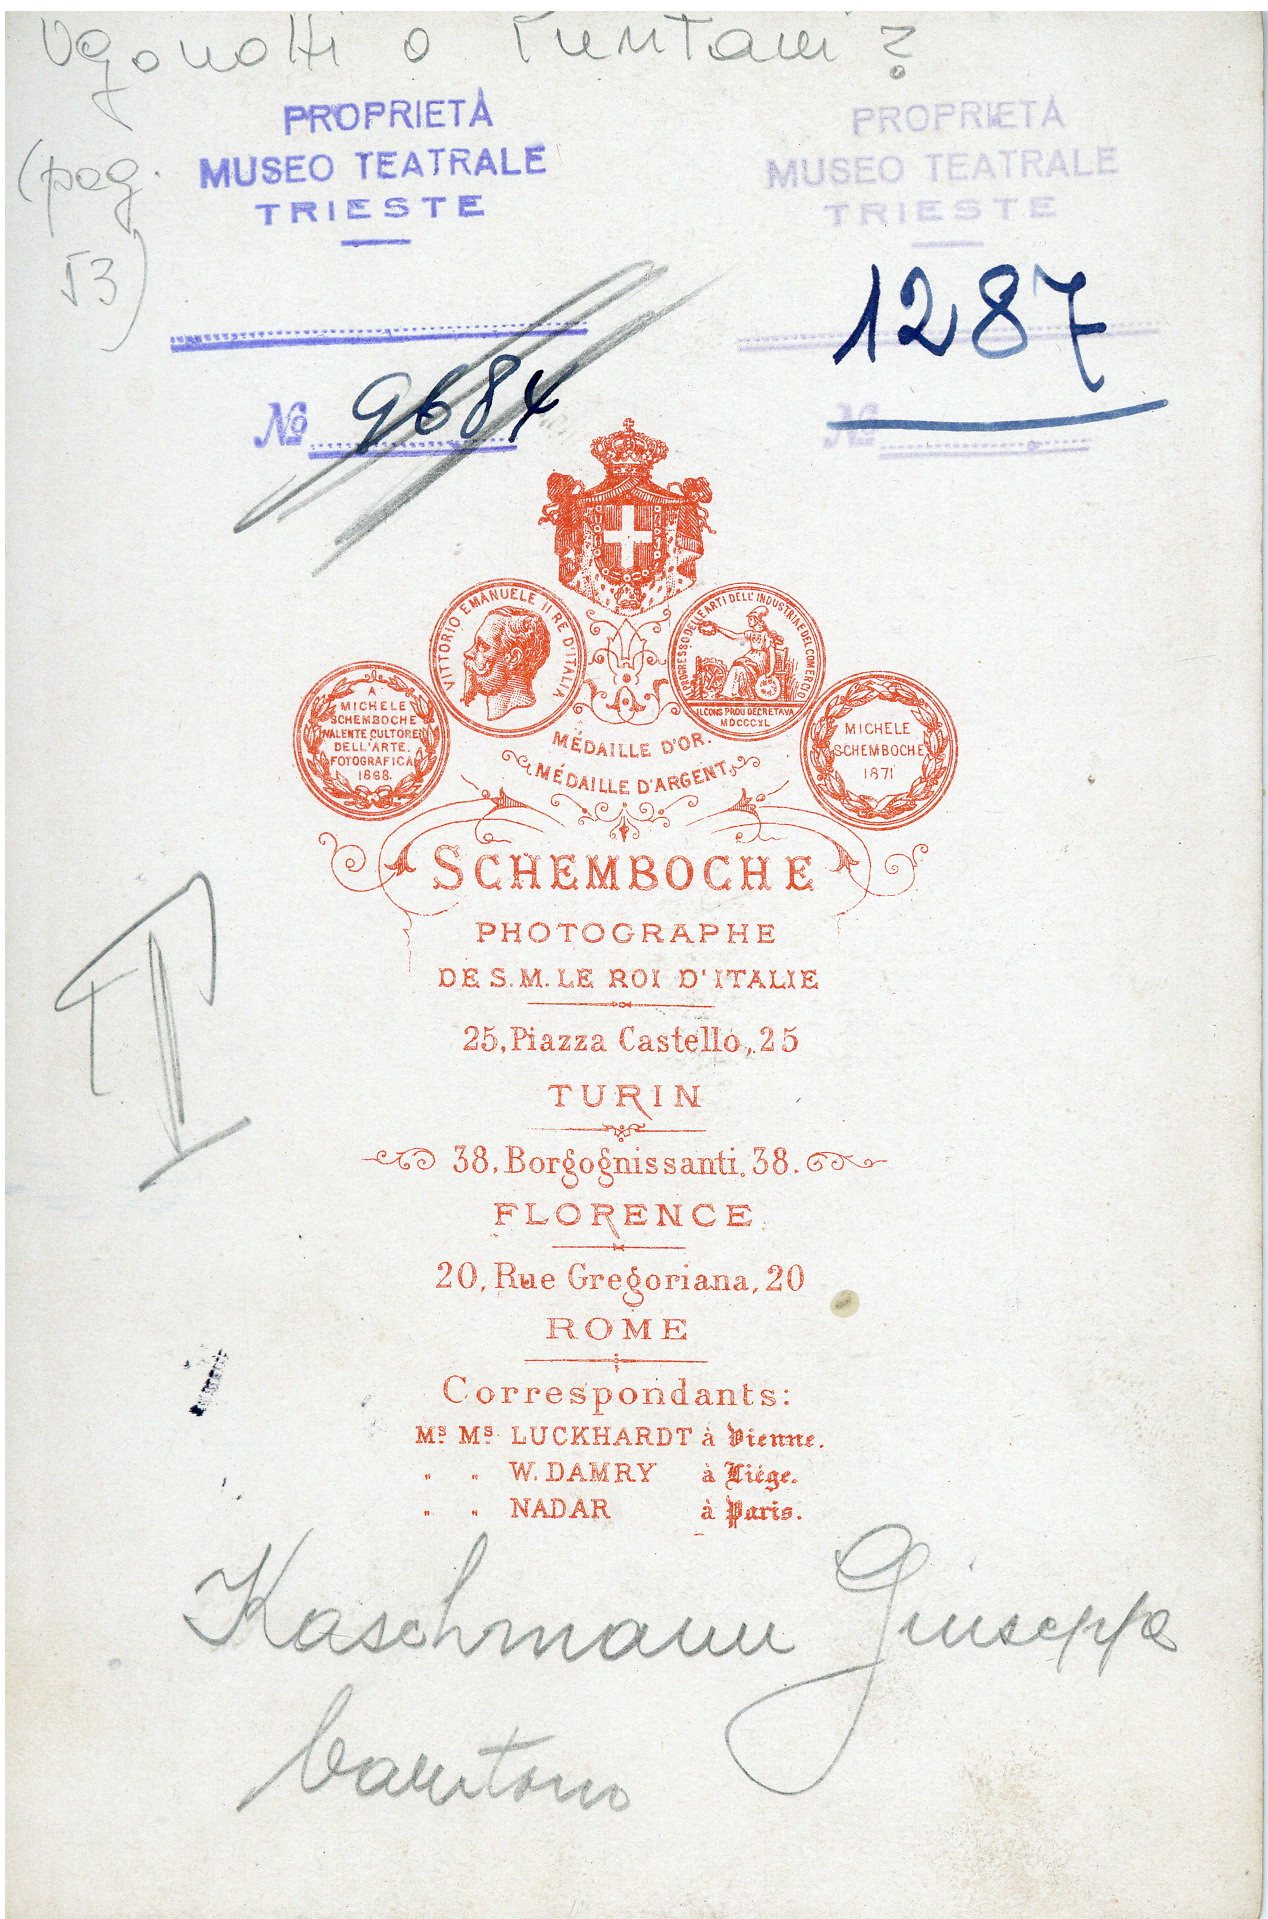 Ugonotti o Puritani?
(pag. 53)
PROPRIETÀ
MUSEO TEATRALE
TRIESTE
No 9684
PROPRIETÀ
MUSEO TEATRALE
TRIESTE
1287
No
VITTORIO EMANUELE II RE D'ITALIA
PROGRESSO DELLE ARTI DELL'INDUSTRIA E DEL COMERCIO
IL CONS PROU DECRETAVA
MDCCCXL
A
MICHELE
SCHEMBOCHE
VALENTE CULTORE
DELL'ARTE
FOTOGRAFICA
1868.
MICHELE
SCHEMBOCHE
1871
MÉDAILLE D'OR.
MÉDAILLE D'ARGENT.
SCHEMBOCHE
PHOTOGRAPHE
DE S. M. LE ROI D'ITALIE
25, Piazza Castello, 25
TURIN
38, Borgognissanti, 38.
FLORENCE
20, Rue Gregoriana, 20
ROME
Correspondants:
Ms Ms LUCKHARDT à Vienne.
" " W. DAMRY à Liége.
" " NADAR à Paris.
II
Kaschmann Giuseppe
baritono